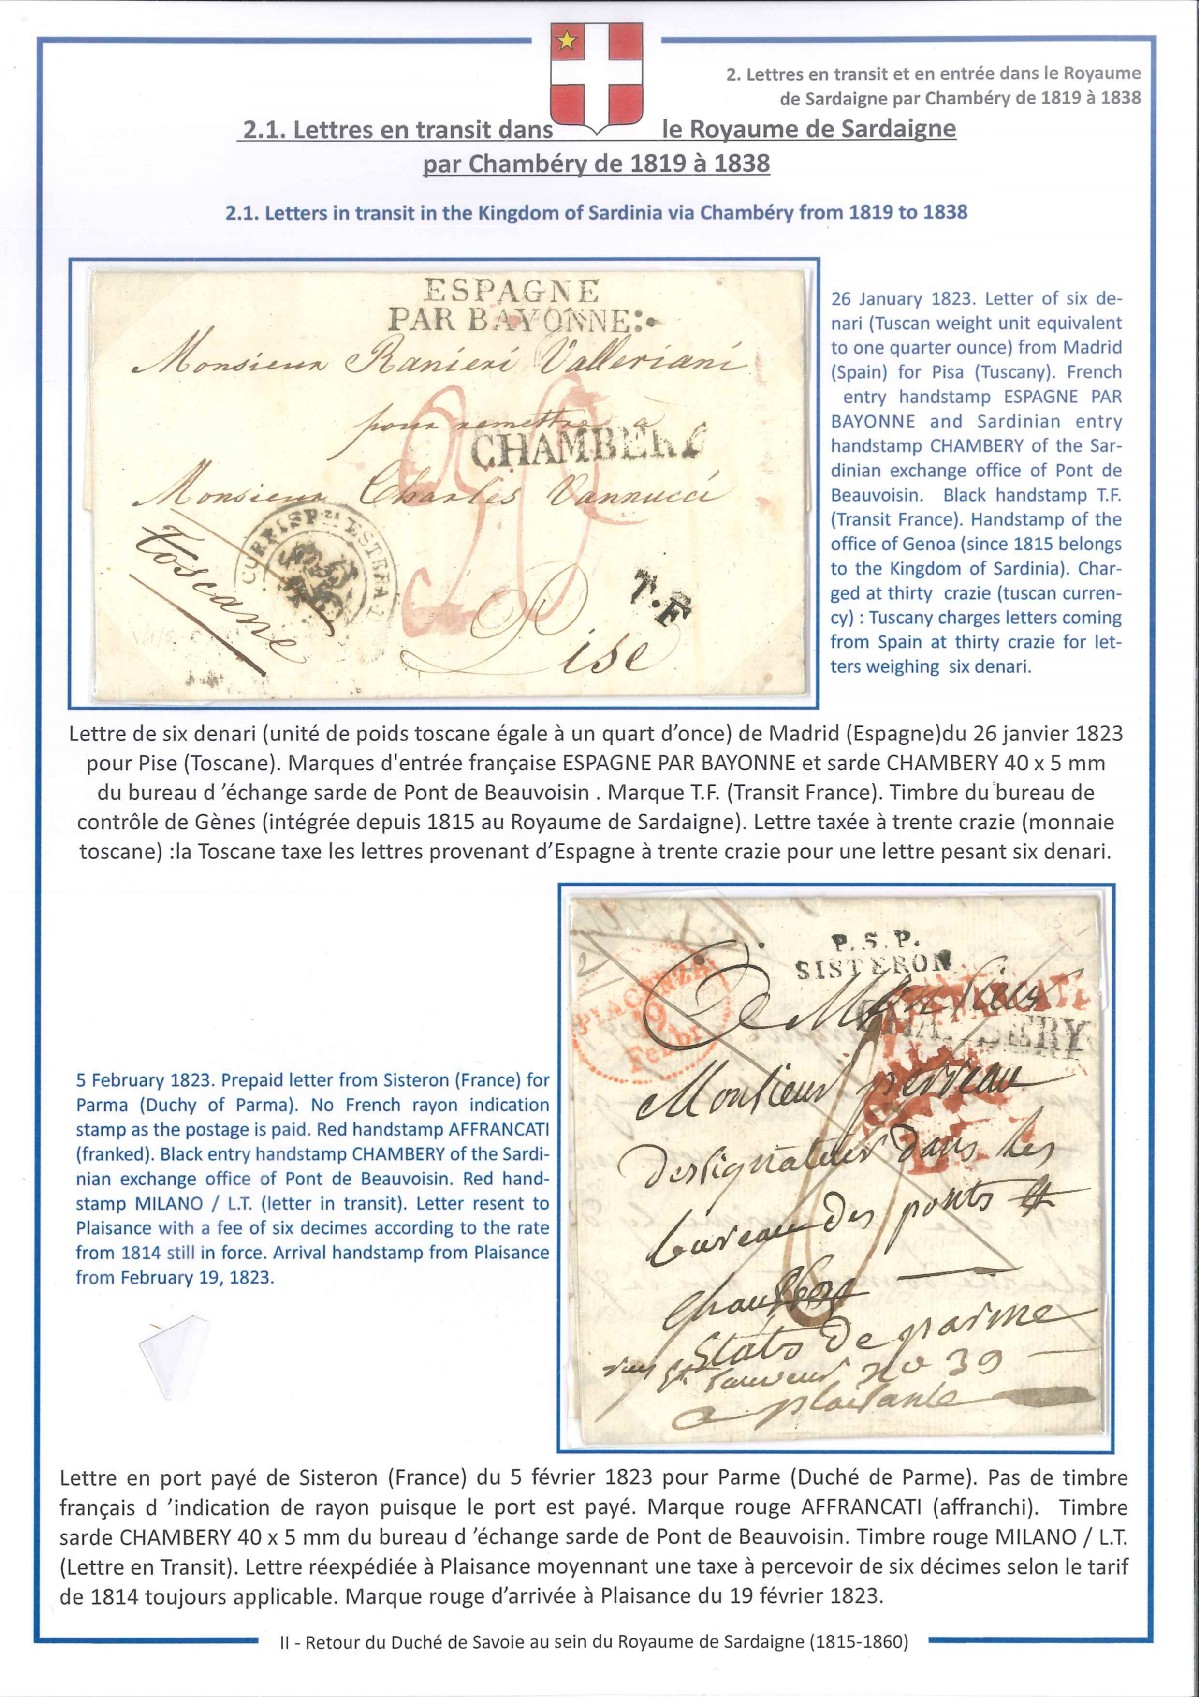 2. Lettres en transit et en entrée dans le Royaume
de Sardaigne par Chambéry de 1819 à 1838
2.1. Lettres en transit dans le Royaume de Sardaigne
par Chambéry de 1819 à 1838
2.1. Letters in transit in the Kingdom of Sardinia via Chambéry from 1819 to 1838
ESPAGNE
PAR BAYONNE
Monsieur Ranieri Valleriani
pour remettre à
CHAMBERY
Monsieur Charles Vannucci
CORRISPZA ESTERA
Toscane
30
T.F
Pise
26 January 1823. Letter of six de-
nari (Tuscan weight unit equivalent
to one quarter ounce) from Madrid
(Spain) for Pisa (Tuscany). French
entry handstamp ESPAGNE PAR
BAYONNE and Sardinian entry
handstamp CHAMBERY of the Sar-
dinian exchange office of Pont de
Beauvoisin. Black handstamp T.F.
(Transit France). Handstamp of the
office of Genoa (since 1815 belongs
to the Kingdom of Sardinia). Char-
ged at thirty crazie (tuscan curren-
cy) : Tuscany charges letters coming
from Spain at thirty crazie for let-
ters weighing six denari.
Lettre de six denari (unité de poids toscane égale à un quart d’once) de Madrid (Espagne)du 26 janvier 1823
pour Pise (Toscane). Marques d'entrée française ESPAGNE PAR BAYONNE et sarde CHAMBERY 40 x 5 mm
du bureau d ’échange sarde de Pont de Beauvoisin . Marque T.F. (Transit France). Timbre du bureau de
contrôle de Gènes (intégrée depuis 1815 au Royaume de Sardaigne). Lettre taxée à trente crazie (monnaie
toscane) :la Toscane taxe les lettres provenant d’Espagne à trente crazie pour une lettre pesant six denari.
P.S.P.
SISTERON
PIACENZA
19
Febbr
CHAMBERY
A Monsieur
Monsieur perreau
dessignateur dans les
bureau des ponts et
chaussées
Stats de parme
rue St Sauveur no 39
a plaisante
5 February 1823. Prepaid letter from Sisteron (France) for
Parma (Duchy of Parma). No French rayon indication
stamp as the postage is paid. Red handstamp AFFRANCATI
(franked). Black entry handstamp CHAMBERY of the Sardi-
nian exchange office of Pont de Beauvoisin. Red hand-
stamp MILANO / L.T. (letter in transit). Letter resent to
Plaisance with a fee of six decimes according to the rate
from 1814 still in force. Arrival handstamp from Plaisance
from February 19, 1823.
Lettre en port payé de Sisteron (France) du 5 février 1823 pour Parme (Duché de Parme). Pas de timbre
français d ’indication de rayon puisque le port est payé. Marque rouge AFFRANCATI (affranchi). Timbre
sarde CHAMBERY 40 x 5 mm du bureau d ’échange sarde de Pont de Beauvoisin. Timbre rouge MILANO / L.T.
(Lettre en Transit). Lettre réexpédiée à Plaisance moyennant une taxe à percevoir de six décimes selon le tarif
de 1814 toujours applicable. Marque rouge d’arrivée à Plaisance du 19 février 1823.
II - Retour du Duché de Savoie au sein du Royaume de Sardaigne (1815-1860)